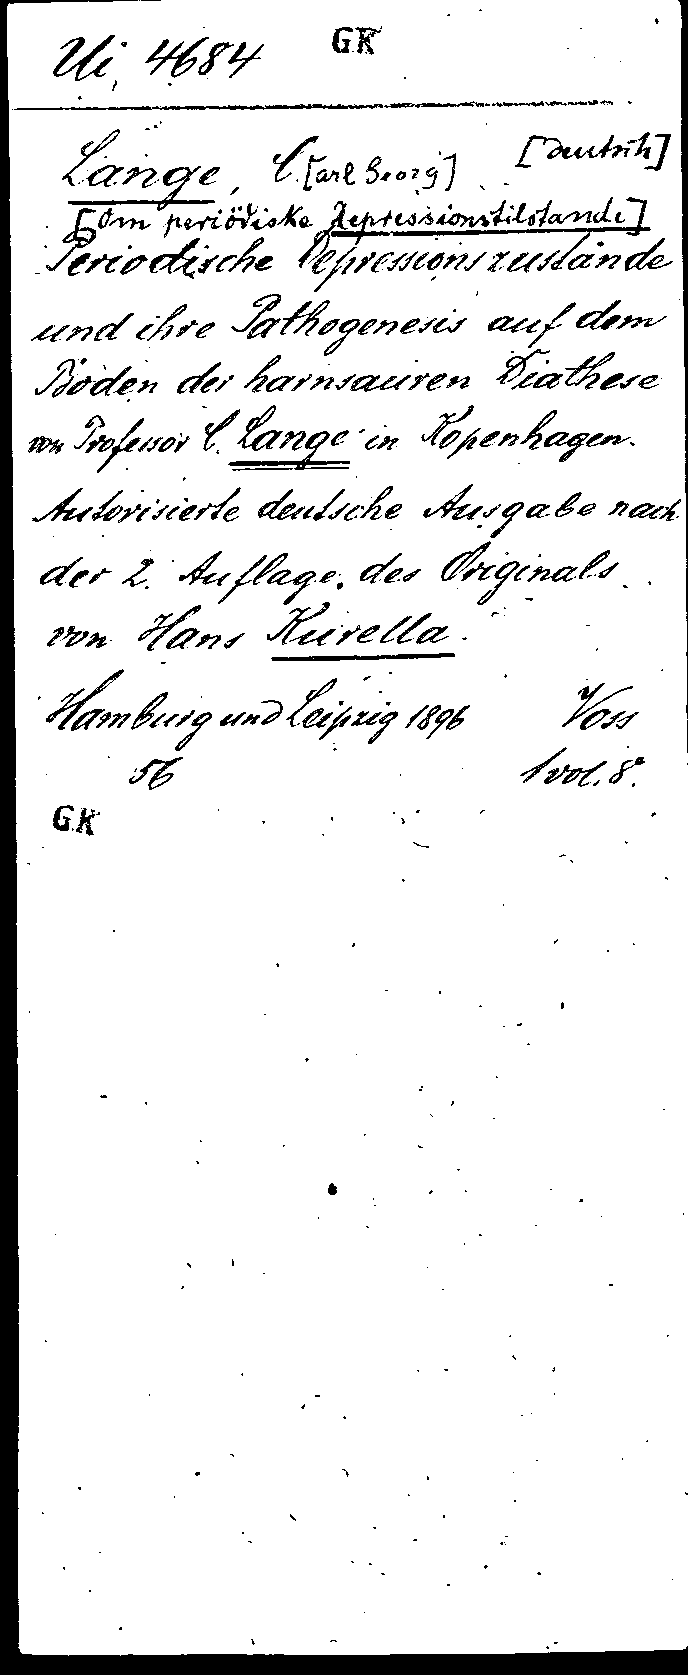 Ui 4684 GK
Lange, C.[arl Georg] [deutsch]
[Om periodiske Depressionstilstande]
Periodische Depressionszustände
und ihre Pathogenesis auf dem
Boden der harnsauren Diathese
von Professor C. Lange in Kopenhagen.
Autorisierte deutsche Ausgabe nach
der 2. Auflage des Originals
von Hans Kurella.
Hamburg und Leipzig 1896 Voss
56 1 vol. 8°.
GK